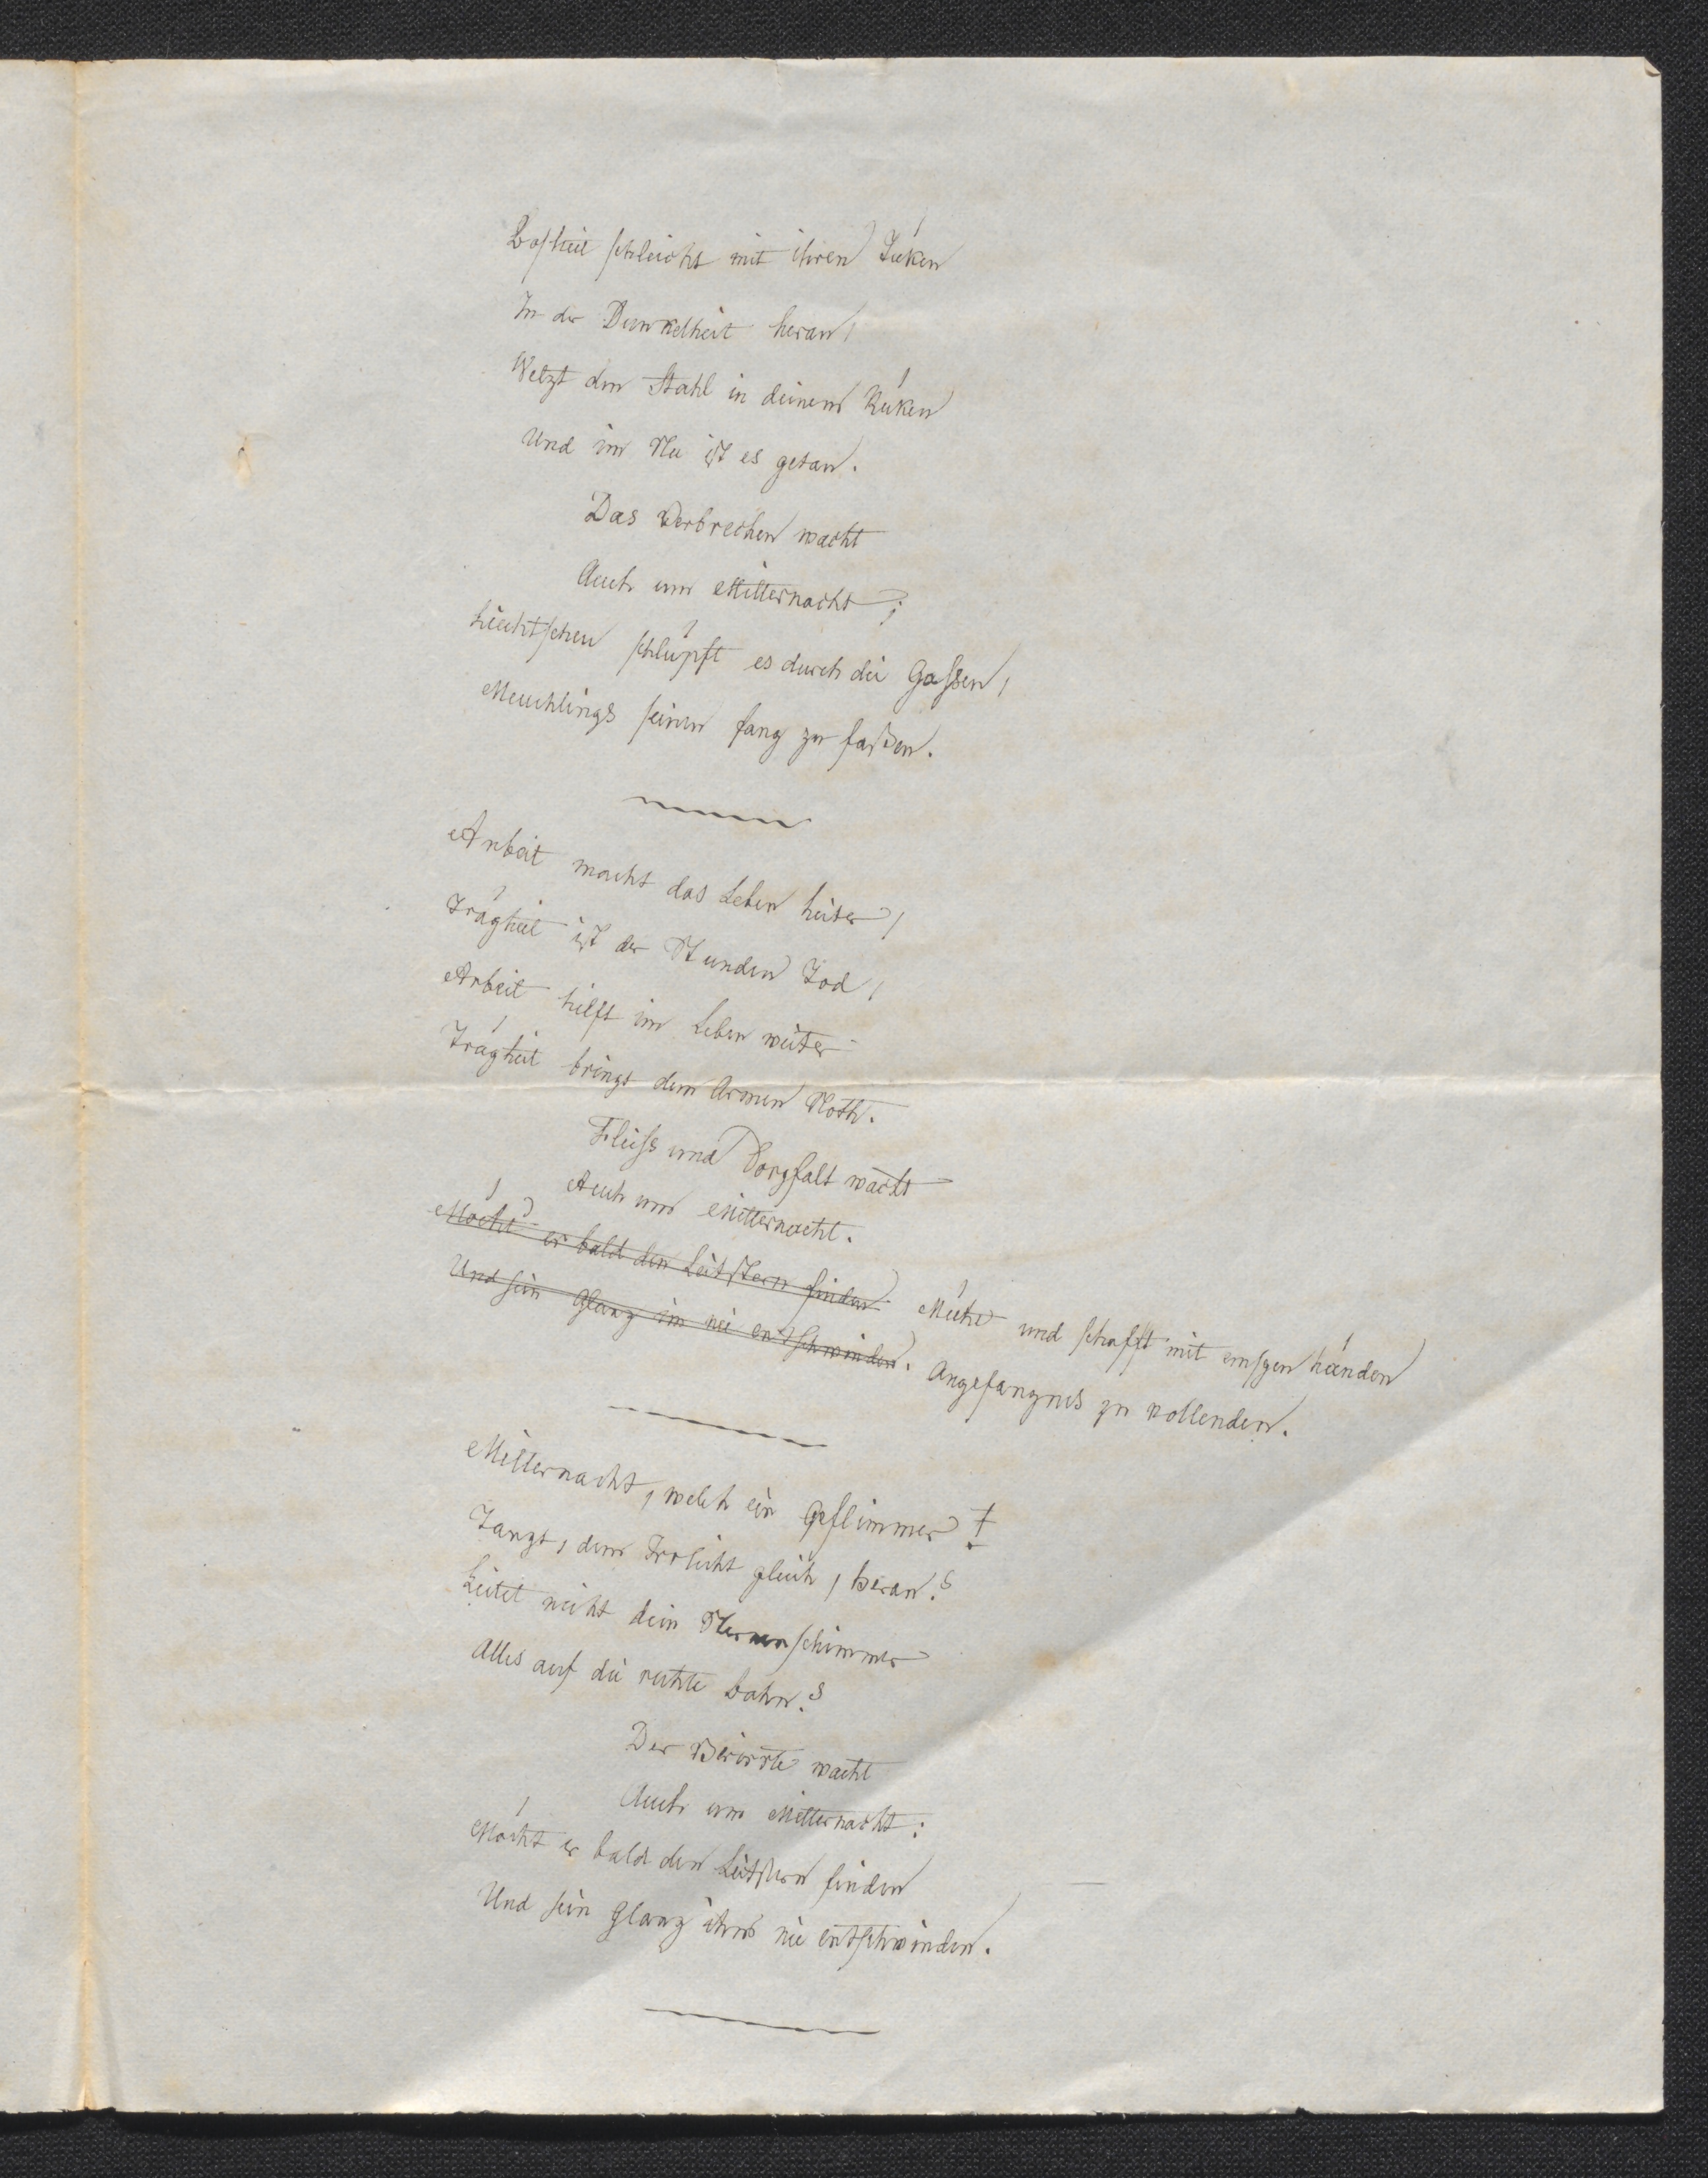 Bosheit schleicht mit ihren Tüken
In der Dunkelheit heran,
Wetzt den Stahl in deinem Rüken
Und im Nu ist es getan.
Das Verbrechen wacht
Auch um Mitternacht;
Lichtscheu schlüpft es durch die Gassen,
Meuchlings seinen Fang zu fassen.
Arbeit macht das Leben heiter,
Trägheit ist der Stunden Tod,
Arbeit hilft im Leben weiter
Trägheit bringt dem Armen Noth.
Fleiss und Sorgfalt wacht
Auch um Mitternacht.
Möcht er bald den Leitstern finden Mühe und schafft mit emsgen Händen
Und sein Glanz im nie entschwinden. Angefangnes zu vollenden.
Mitternacht, welch ein Geflimmer!
Tanzt, dem Irrlicht gleich, heran?
Leitet nicht dein Sternenschimmer
Alles auf die rechte Bahn?
Der Verirrte wacht
Auch um Mitternacht:
Möcht er bald den Leitstern finden
Und sein Glanz ihm nie entschwinden.